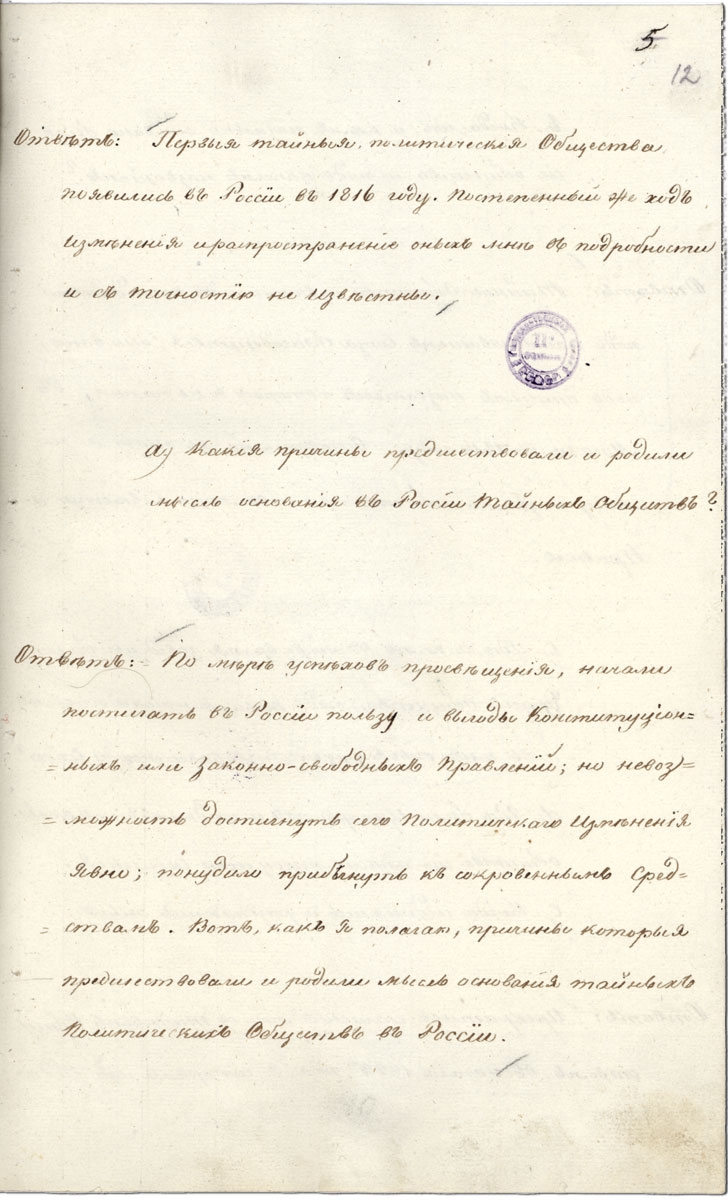 5
12
Отвѣтъ: Первыя тайныя, политическія Общества
появились въ Россіи въ 1816 году. Постепенный же ходъ
измѣненія и распространеніе оныхъ мнѣ въ подробности
и съ точностію не извѣстны.
а) Какія причины предшествовали и родили
мысль основанія въ Россіи Тайныхъ Обществъ?
Отвѣтъ: По мѣрѣ успѣховъ просвѣщенія, начали
постигать въ Россіи пользу и выгоды Конституціон=
=ныхъ или Законно-свободныхъ Правленій; но невоз=
=можность достигнуть сего Политическаго Измѣненія
явно; понудило прибѣгнуть къ сокровеннымъ Сред=
=ствамъ. Вотъ, какъ я полагаю, причины которыя
предшествовали и родили мысль основанія тайныхъ
Политическихъ Обществъ въ Россіи.